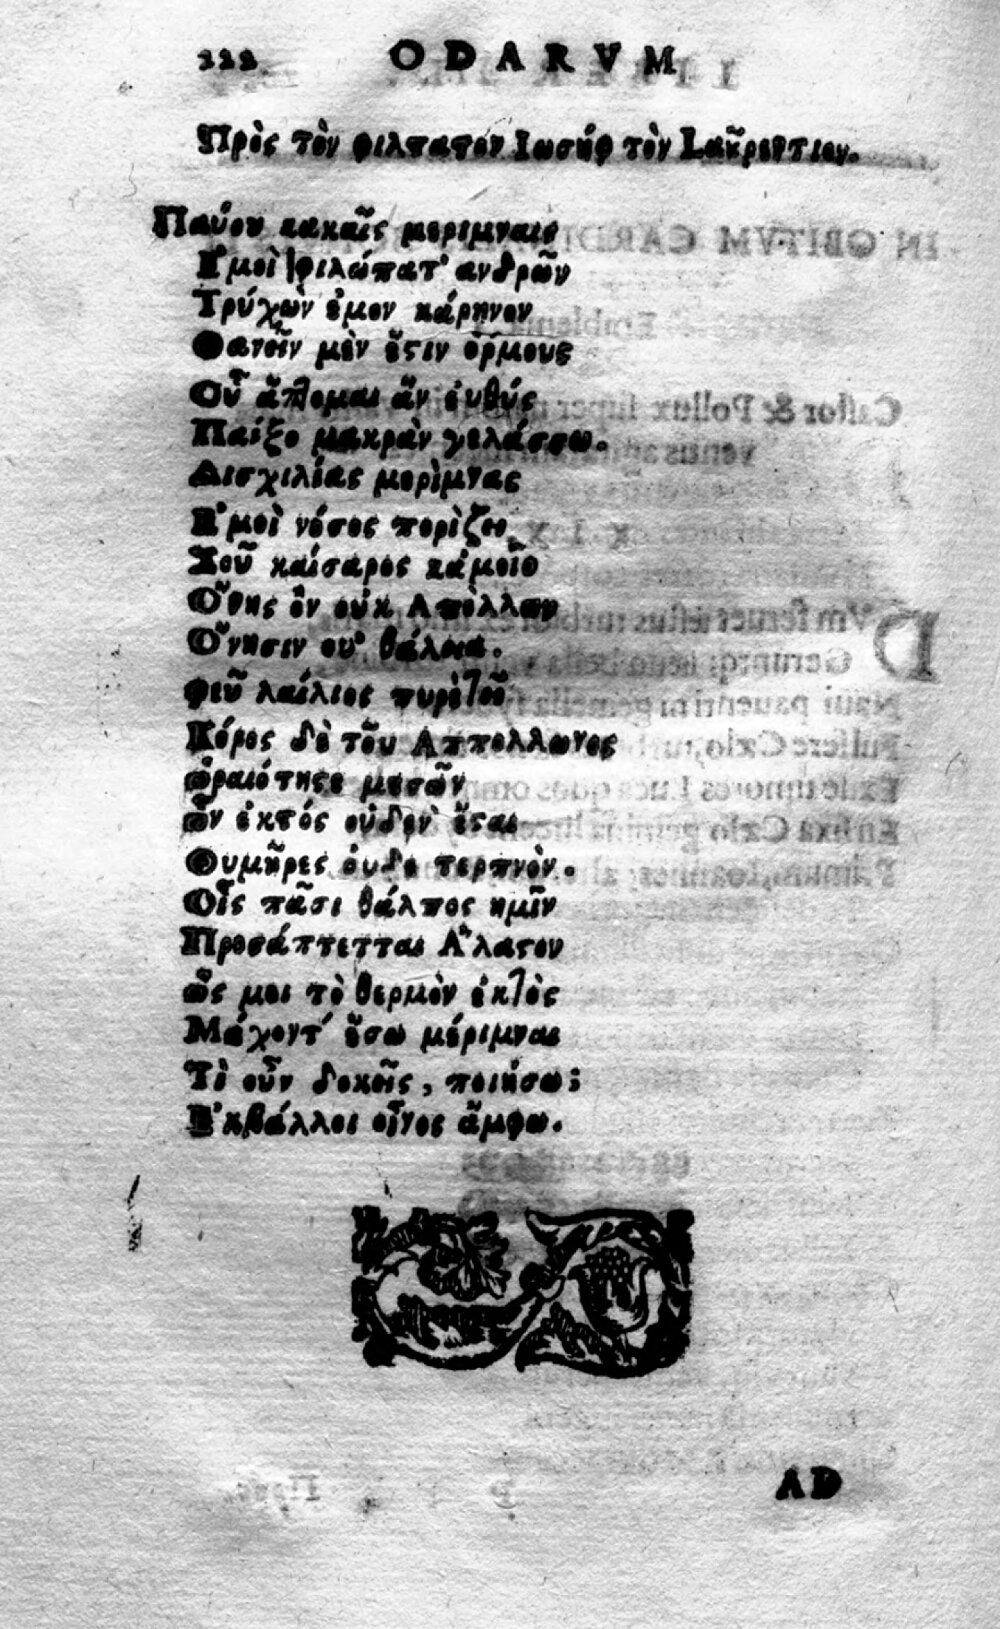 222 ODARVM
Πρὸς τὸν φιλτατον Ιωσήφ τὸν Lαῦρεντιον.
Παύου κακαῖς μεριμναις
Ε᾿μοὶ φιλώπατ᾽ ανδρῶν
Τρύχων ἐμον κάρηνον
Θανεῖν μὲν ἔστιν ὅρμους
Οὗ ἅπτομαι ἂν ἐυθύς
Παίξο μακρὰν γελάσσω.
Δισχιλίας μερίμνας
Ε᾿μοὶ νόσος πορὶζει
καίσαρος
ὃν ουκ Απὸλλων
Ο῎νησιν
φεῦ λαίλιος πυρὲτοῦ
Κόρος δὲ τοῦ Αππολλωνος
ὡραιότης μεσῶν
ὧν ἐκτός οὐδεν ἔσται
Θυμῆρες ὀυδε τερπνὸν.
Οἷς πᾶσι θάλπος ημῖν
Προσάπτετται
ὥς μοι τὸ θερμὸν ἐκτὸς
Μάχοντ᾽ ἔσω μέριμναι
Τὶ οὖν δοκεῖς, ποιήσω;
Ε᾿κβάλλοι οἶνος ἄμφω.
AD